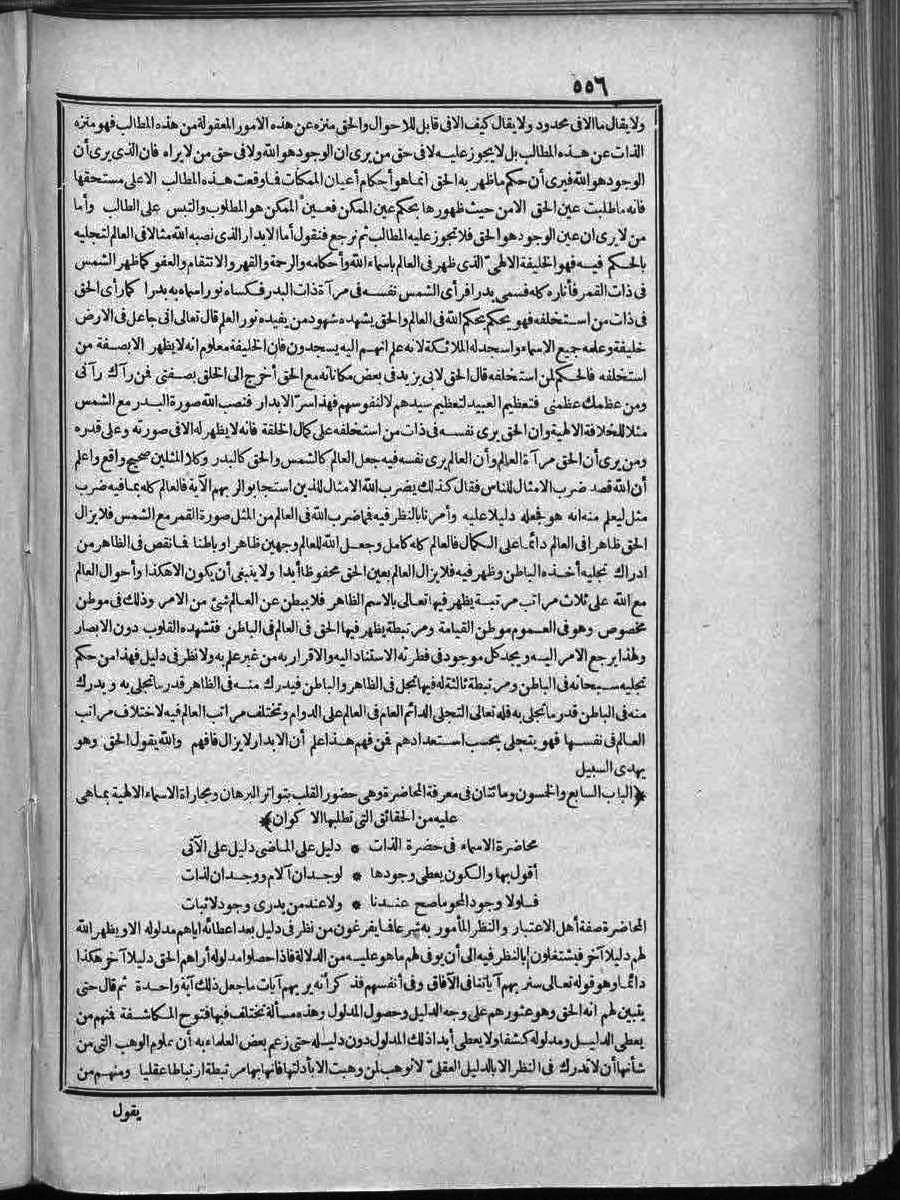 ٥٥٦
ولا يقال ما الا فى محدود ولا يقال كيف الا فى قابل للاحوال والحق منزه عن هذه الامور المعقولة من هذه المطالب فهو منزه
الذات عن هذه المطالب بل لا يجوز عليه لا فى حق من يرى ان الوجود هو الله ولا فى حق من لا يراه فان الذى يرى أن
الوجود هو الله فيرى أن حكم ما ظهر به الحق انما هو أحكام أعيان الممكنات فما وقعت هذه المطالب الا على مستحقها
فانه ما طلبت عين الحق الا من حيث ظهورها بحكم عين الممكن فعين الممكن هو المطلوب والتبس على الطالب وأما
من لا يرى ان عين الوجود هو الحق فلا تجوز عليه المطالب ثم نرجع فنقول أما الابدار الذى نصبه الله مثالا فى العالم لتجليه
بالحكم فيه فهو الخليفة الالهىّ الذى ظهر فى العالم باسماء الله وأحكامه والرحمة والقهر والانتقام والعفو كما ظهر الشمس
فى ذات القمر فأناره كله فسمى بدرا فرأى الشمس نفسه فى مرآة ذات البدر فكساه نورا سماه به بدرا كما رأى الحق
فى ذات من استخلفه فهو يحكم بحكم الله فى العالم والحق يشهده شهود من يفيده نور العلم قال تعالى انى جاعل فى الارض
خليفة وعلمه جميع الاسماء واسجد له الملائكة لانه علم انهم اليه يسجدون فان الخليفة معلوم انه لا يظهر الا بصفة من
استخلفه فالحكم لمن استخلفه قال الحق لابى يزيد فى بعض مكاناته مع الحق أخرج الى الخلق بصفتى فمن رآك رآنى
ومن عظمك عظمنى فتعظيم العبيد لتعظيم سيدهم لا لنفوسهم فهذا سرّ الابدار فنصب الله صورة البدر مع الشمس
مثلا للخلافة الالهية وان الحق يرى نفسه فى ذات من استخلفه على كمال الخلقة فانه لا يظهر له الا فى صورته وعلى قدره
ومن يرى أن الحق مرآة العالم وأن العالم يرى نفسه فيه جعل العالم كالشمس والحق كالبدر وكلا المثلين صحيح واقع واعلم
أن الله قصد ضرب الامثال للناس فقال كذلك يضرب الله الامثال للذين استجابوا لربهم الآية فالعالم كله بما فيه ضرب
مثل ليعلم منه انه هو فجعله دليلا عليه وأمرنا بالنظر فيه فما ضرب الله فى العالم من المثل صورة القمر مع الشمس فلا يزال
الحق ظاهرا فى العالم دائما على الكمال فالعالم كله كامل وجعل الله للعالم وجهين ظاهرا وباطنا فما نقص فى الظاهر من
ادراك تجليه أخذه الباطن وظهر فيه فلا يزال العالم بعين الحق محفوظا أبدا ولا ينبغى أن يكون الا هكذا وأحوال العالم
مع الله على ثلاث مراتب مرتبة يظهر فيها تعالى بالاسم الظاهر فلا يبطن عن العالم شئ من الامر وذلك فى موطن
مخصوص وهو فى العموم موطن القيامة ومرتبطة يظهر فيها الحق فى العالم فى الباطن فتشهده القلوب دون الابصار
ولهذا يرجع الامر اليه ويجد كل موجود فى فطرته الاستناد اليه والاقرار به من غير علم به ولا نظر فى دليل فهذا من حكم
تجليه سبحانه فى الباطن ومرتبطة ثالثة له فيها تجل فى الظاهر والباطن فيدرك منه فى الظاهر قدر ما تجلى به ويدرك
منه فى الباطن قدر ما تجلى به فله تعالى التجلى الدائم العام فى العالم على الدوام وتختلف مراتب العالم فيه لاختلاف مراتب
العالم فى نفسها فهو يتجلى بحسب استعدادهم فمن فهم هذا علم أن الابدار لا يزال فافهم والله يقول الحق وهو
يهدى السبيل
﴿الباب السابع والخمسون ومائتان فى معرفة المحاضرة وهى حضور القلب بتواتر البرهان ومجاراة الاسماء الالهية بما هى
عليه من الحقائق التى تطلبها الاكوان﴾
محاضرة الاسماء فى حضرة الذات * دليل على الماضى دليل على الآتى
أقول بها والكون يعطى وجودها * لوجدان آلام ووجدان لذات
فلولا وجود المحو ما صح عندنا * ولا عند من يدرى وجود لاثبات
المحاضرة صفة أهل الاعتبار والنظر المأمور به شرعا فما يفرغون من نظر فى دليل بعد اعطائه اياهم مدلوله الا ويظهر الله
لهم دليلا آخر فيشتغلون بالنظر فيه الى أن يوفى لهم ما هو عليه من الدلالة فاذا حصلوا مدلوله أراهم الحق دليلا آخر هكذا
دائما وهو قوله تعالى سنريهم آياتنا فى الآفاق وفى أنفسهم فذكر أنه يريهم آيات ما جعل ذلك آية واحدة ثم قال حتى
يتبين لهم انه الحق وهو عثورهم على وجه الدليل وحصول المدلول وهذه مسألة تختلف فيها فتوح المكاشفة فمنهم من
يعطى الدليل ومدلوله كشفا ولا يعطى أبدا ذلك المدلول دون دليله حتى زعم بعض العلماء به أن علوم الوهب التى من
شأنها أن لا تدرك فى النظر الا بالدليل العقلىّ لا توهب لمن وهبت الا بأدلتها فانها بها مرتبطة ارتباطا عقليا ومنهم من
يقول